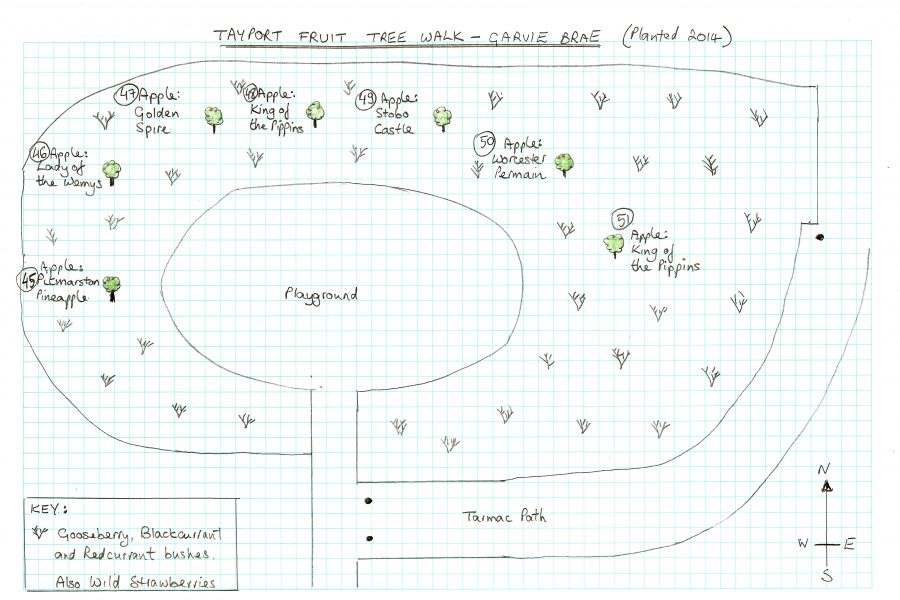 TAYPORT FRUIT TREE WALK - GARVIE BRAE (Planted 2014)
47 Apple:
Golden
Spire
48 Apple:
King of
the Pippins
49 Apple:
Stobo
Castle
50 Apple:
Worcester
Permain
46 Apple:
Lady of
the Wemys
51
Apple:
King of
the Pippins
45 Apple:
Pitmarston
Pineapple
Playground
Tarmac Path
N
W E
S
KEY:
Gooseberry, Blackcurrant
and Redcurrant bushes.
Also Wild Strawberries